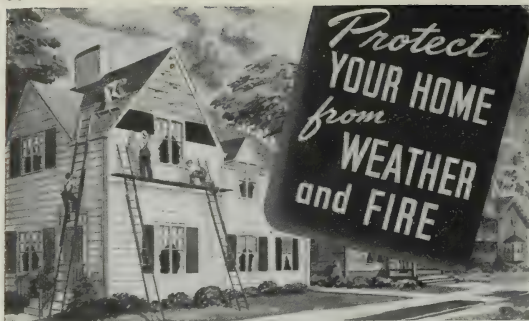 Protect
YOUR HOME
from
WEATHER
and FIRE